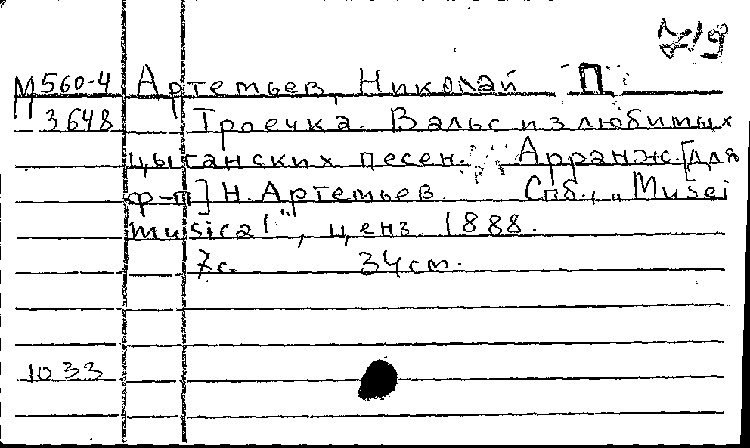 719
М 560-4 Артемьев, Николай П
3648 Троечка. Вальс из любимых
цыганских песен. Арранж. [для
ф-п] Н. Артемьев. Спб., "Musei
musical", ценз. 1888.
7с. 34см.
1033